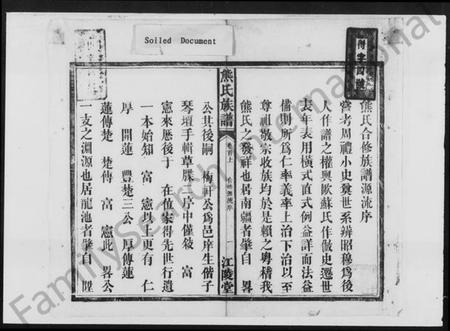 Soiled Document
熊氏合修族譜源流序
嘗考周禮小史奠世系辨昭穆為後
人作譜之權輿歐蘇氏作倣史遷世
去年表用橫式直式例益詳而法益
備則所為仁率義率上治下治以至
尊祖敬宗收族均於是賴之粵稽我
熊氏之發祥也居南疆者肇自 畧
熊氏族譜
卷首上
江陵堂
公其後嗣 梅軒公為邑庠生偕子
琴壇手輯草牒 序中僅敘 富
憲來歷後十 在 家得先世行遺
一本始知 富 憲以上更有 仁
厚 開蓮 豐楚三公 厚傳蓮
蓮傳楚 楚傳 富 憲此 畧公
一支之淵源也居龍池者肇自
FamilySearch International